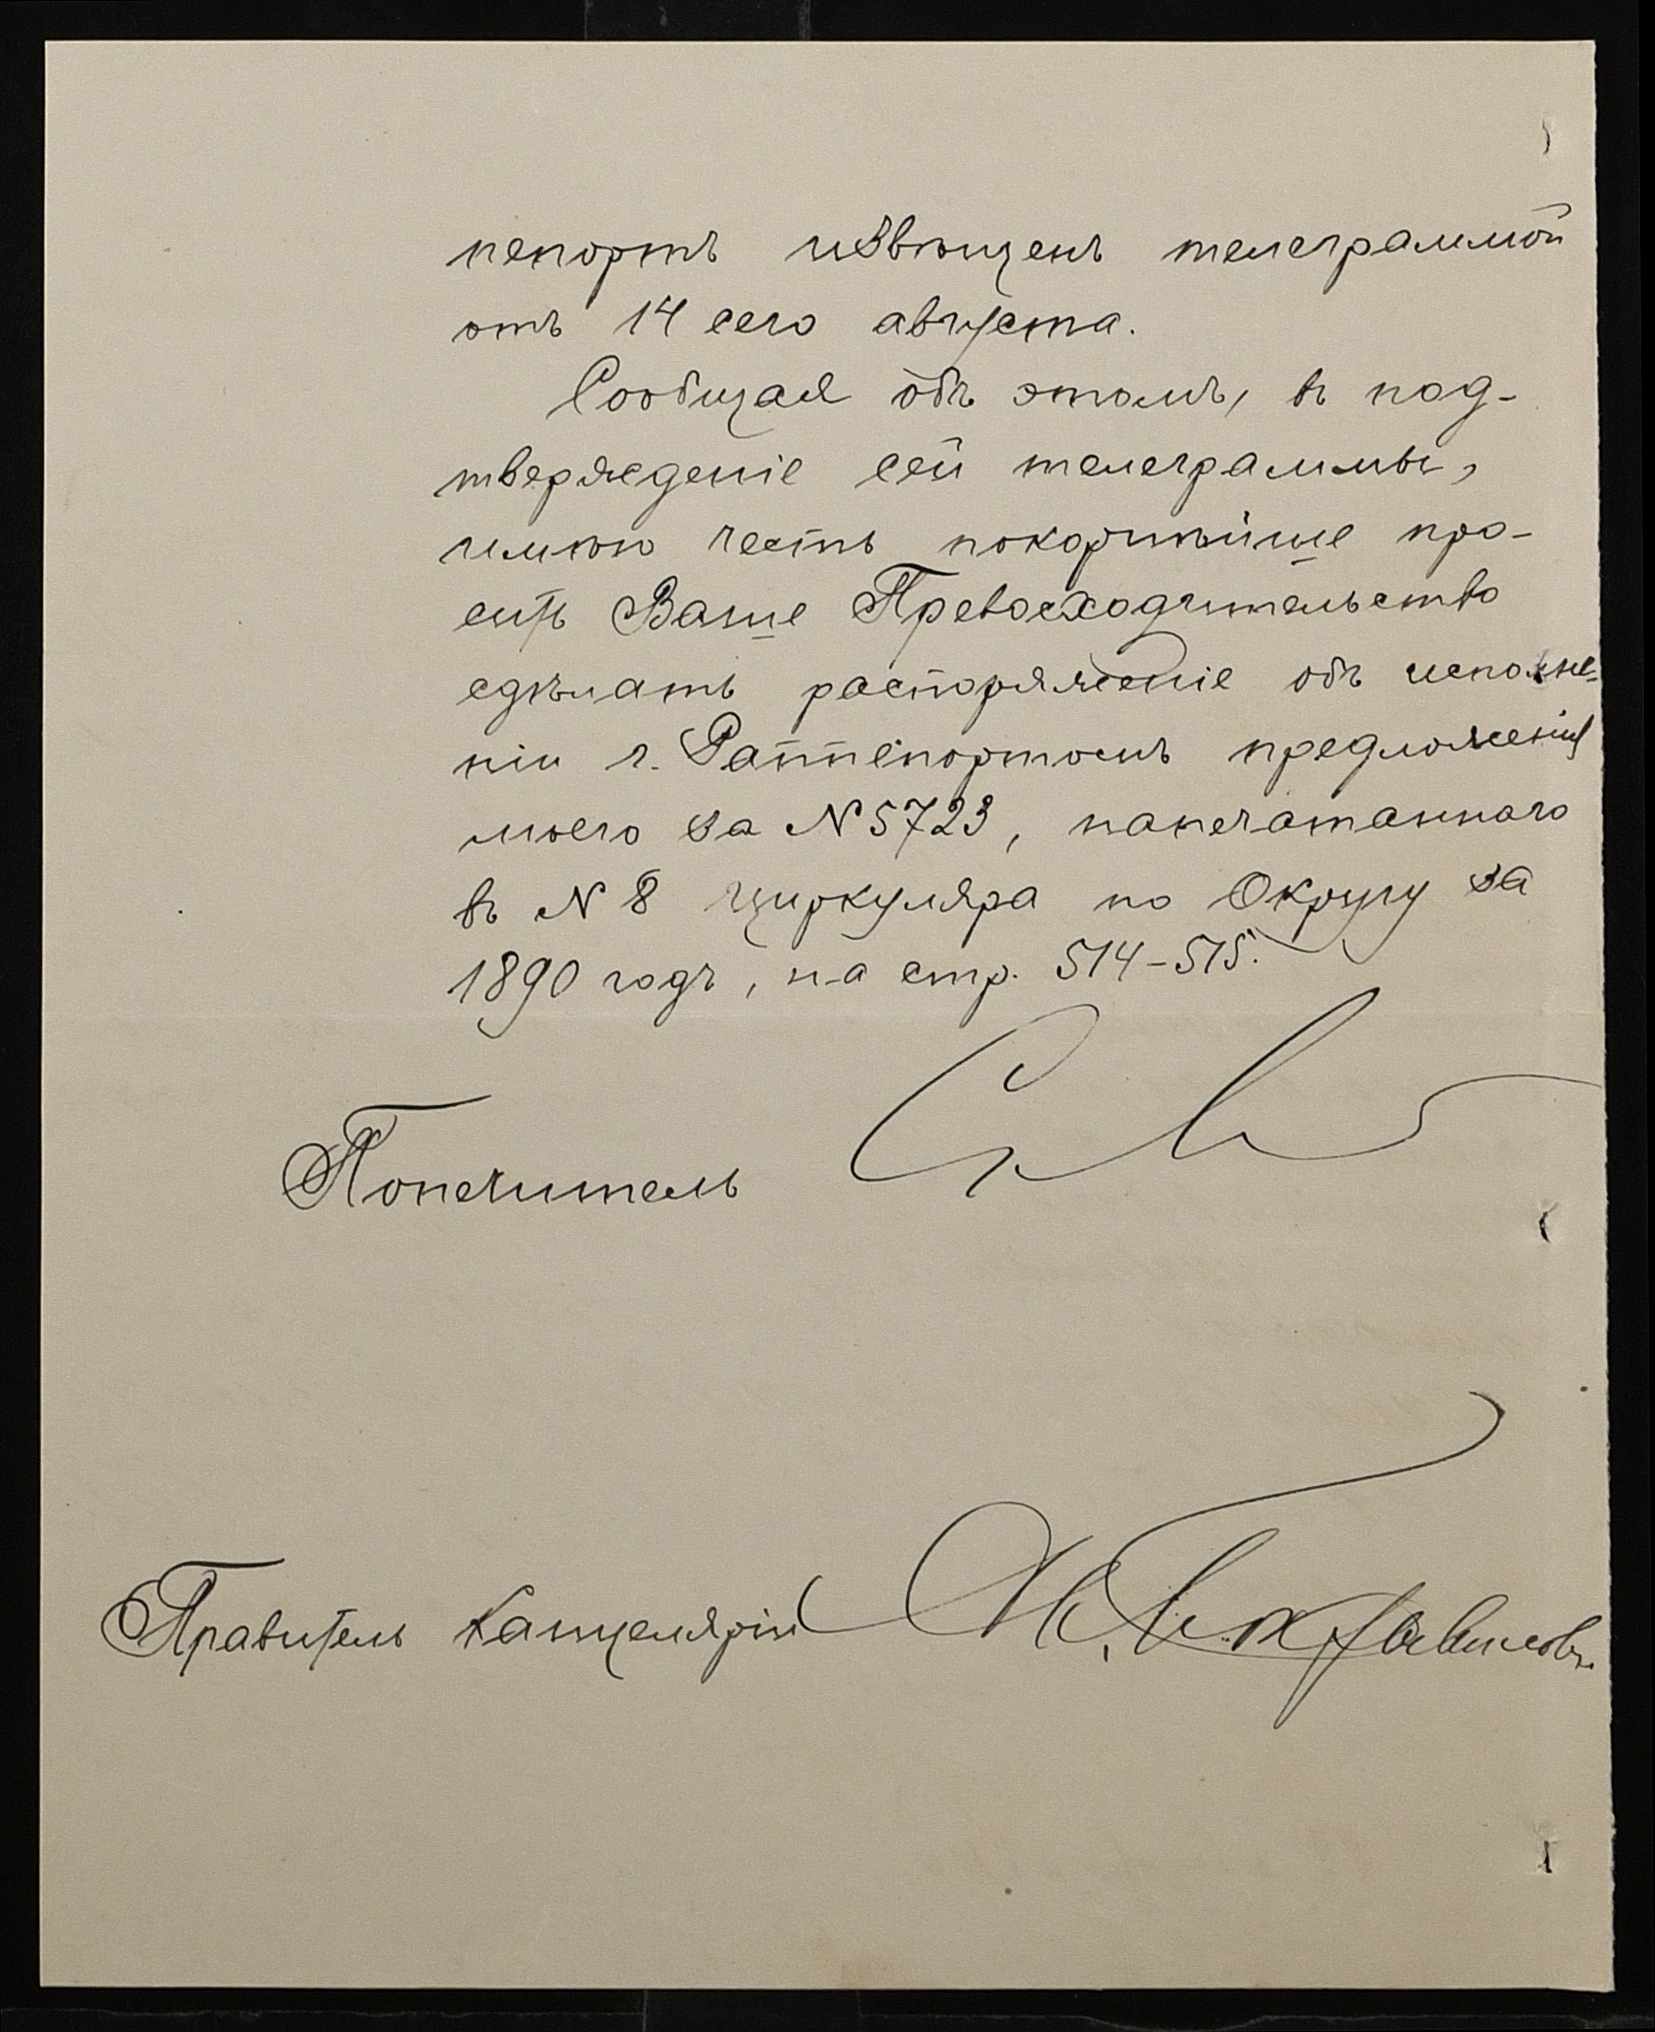 пепортъ извѣщенъ телеграммой
отъ 14 сего августа.
Сообщая объ этомъ, въ под-
твержденіе сей телеграммы,
имѣю честь покорнѣйше про-
сить Ваше Превосходительство
сдѣлать распоряженіе объ исполне-
ніи г. Раппепортомъ предложенія
моего за № 5723, напечатаннаго
въ № 8 циркуляра по Округу за
1890 годъ, на стр. 514-515.
Попечитель
Правитель Канцеляріи